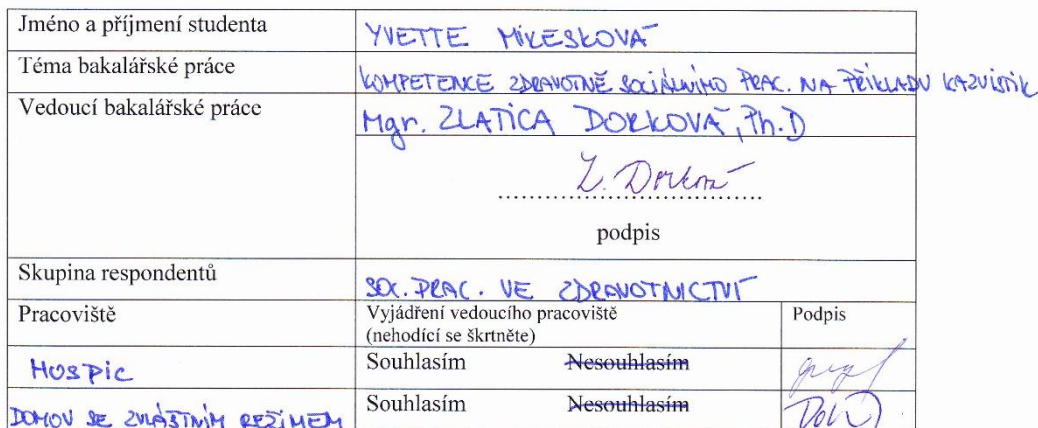 Jméno a příjmení studenta
YVETTE MIKESKOVÁ
Téma bakalářské práce
KOMPETENCE ZDRAVOTNĚ SOCIÁLNÍHO PRAC. NA PŘÍKLADU KAZUISTIK
Vedoucí bakalářské práce
Mgr. ZLATICA DORKOVÁ, Ph.D
Z. Dorková
podpis
Skupina respondentů
SOC. PRAC. VE ZDRAVOTNICTVÍ
Pracoviště
Vyjádření vedoucího pracoviště
(nehodící se škrtněte)
Podpis
HOSPIC
Souhlasím Nesouhlasím
DOMOV SE ZVLÁŠTNÍM REŽIMEM
Souhlasím Nesouhlasím